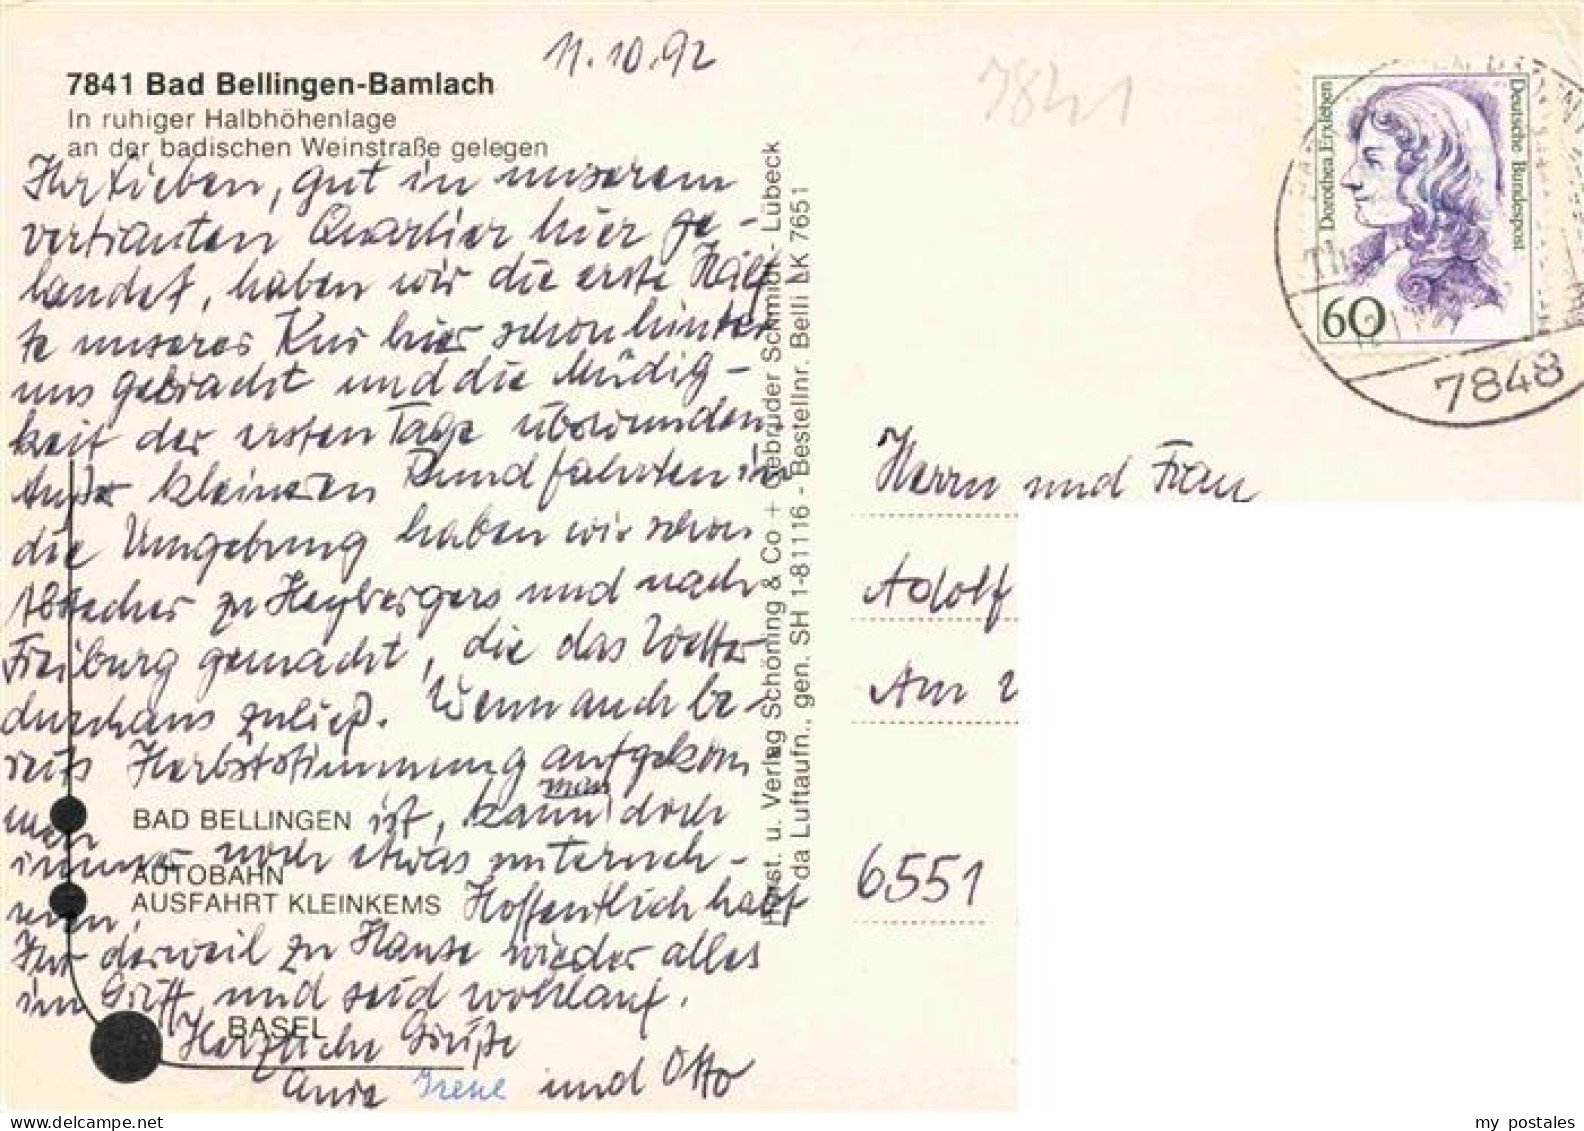 11.10.92
7841 Bad Bellingen-Bamlach
In ruhiger Halbhöhenlage
an der badischen Weinstraße gelegen
Ihr Lieben, gut in unserem
vertrauten Quartier hier ge-
landet, haben wir die erste Hälf
te unserer Kur hier schon hinter
uns gebracht und die Müdig-
keit der ersten Tage überwunden.
Außer kleineren Rundfahrten in
die Umgebung haben wir schon
Abstecher zu Heybergers und nach
Freiburg gemacht, die das Wetter
durchaus zuließ. Wenn auch be-
reits Herbststimmung aufgekom
men ist, kann man doch
immer noch etwas unterneh-
men. Hoffentlich habt
Ihr derweil zu Hause wieder alles
im Griff und seid wohlauf.
Herzliche Grüße
Eure Irene und Otto
BAD BELLINGEN
AUTOBAHN
AUSFAHRT KLEINKEMS
BASEL
Horst. u. Verlag Schöning & Co + Gebrüder Schmidt - Lübeck
da Luftaufn., gen. SH 1-81116 - Bestellnr. Belli LK 7651
7841
Dorothea Erxleben
Deutsche Bundespost
60
7848
Herrn und Frau
Adolf
Am
6551
my postales